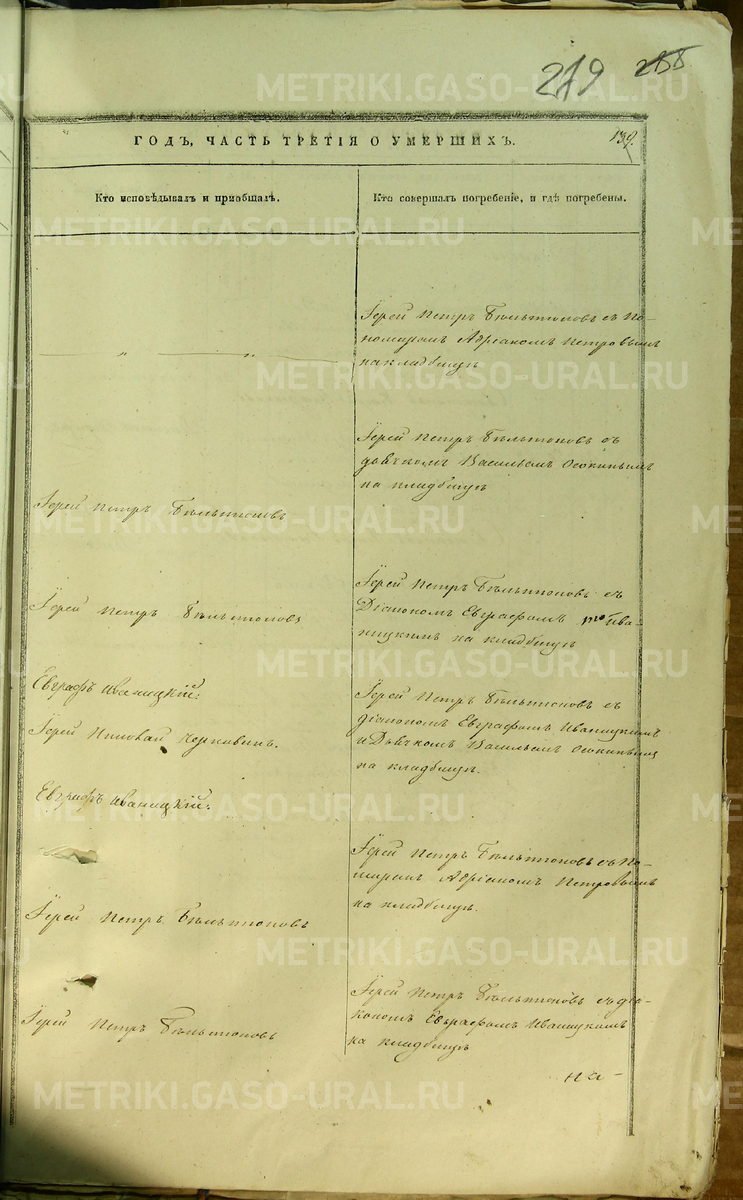 279 288
ГОДЪ, ЧАСТЬ ТРЕТІЯ О УМЕРШИХЪ.
139.
Кто исповѣдывалъ и приобщалъ.
Кто совершалъ погребеніе, и гдѣ погребены.
Іерей Петръ Бѣльтюковъ съ По-
номаремъ Адріаномъ Петровымъ
на кладбищѣ
„ „
Іерей Петръ Бѣльтюковъ съ
дьячкомъ Васильемъ Осокинымъ
на кладбищѣ
Іерей Петръ Бѣльтюковъ
Іерей Петръ Бѣльтюковъ съ
Діакономъ Евграфомъ Ива-
ницкимъ на кладбищѣ
Іерей Петръ Бѣльтюковъ
Іерей Петръ Бѣльтюковъ съ
діакономъ Евграфомъ Иваницкимъ
и Дьячкомъ Васильемъ Осокинымъ
на кладбищѣ.
Евграфъ Иваницкій:
Іерей Николай
Евграфъ Иваницкій:
Іерей Петръ Бѣльтюковъ съ По-
маремъ Адріаномъ Петровымъ
на кладбищѣ.
Іерей Петръ Бѣльтюковъ
Іерей Петръ Бѣльтюковъ съ діа-
кономъ Евграфомъ Иваницкимъ
на кладбищѣ
Іерей Петръ Бѣльтюковъ
на-
METRIKI.GASO-URAL.RU